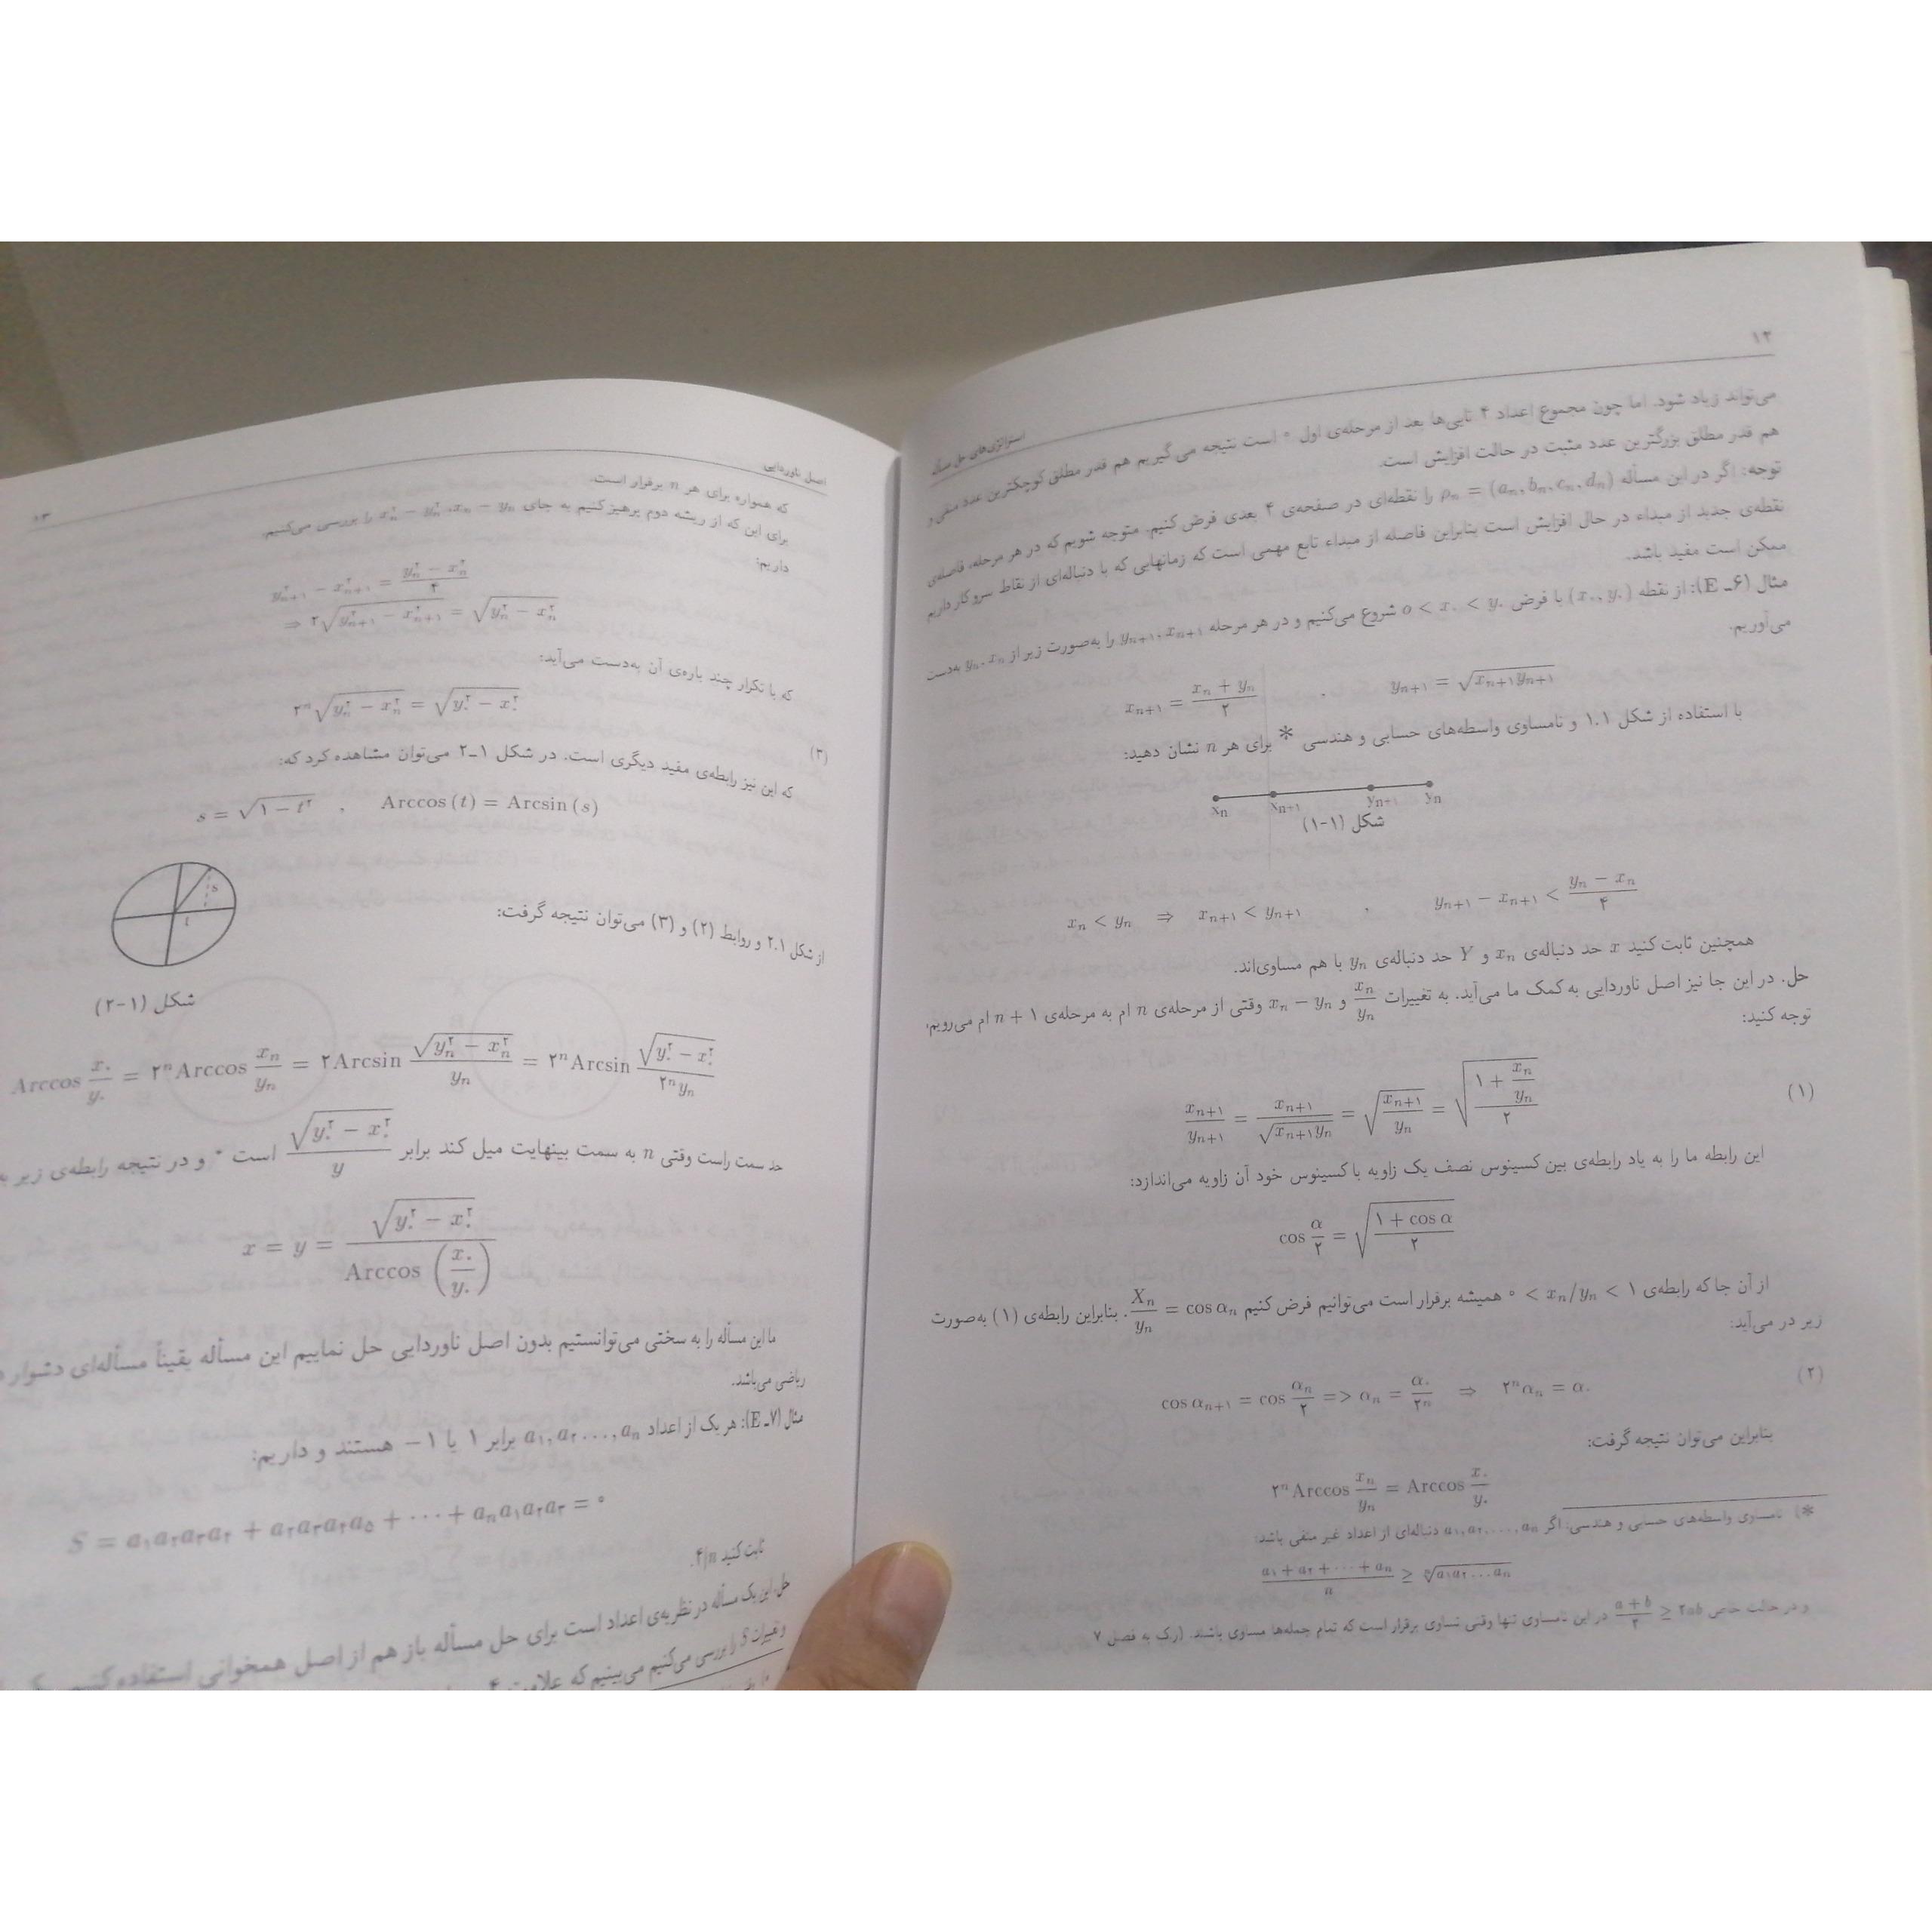 ۱۲
استراتژی‌های حل مسأله
می‌تواند زیاد شود. اما چون مجموع اعداد ۴ تایی‌ها بعد از مرحله‌ی اول ۰ است نتیجه می گیریم هم قدر مطلق کوچکترین عدد منفی و
هم قدر مطلق بزرگترین عدد مثبت در حالت افزایش است.
توجه: اگر در این مسأله (aₙ, bₙ, cₙ, dₙ) = pₙ را نقطه‌ای در صفحه‌ی ۴ بعدی فرض کنیم. متوجه شویم که در هر مرحله، فاصله‌ی
نقطه‌ی جدید از مبداء در حال افزایش است بنابراین فاصله از مبداء تابع مهمی است که زمانهایی که با دنباله‌ای از نقاط سروکار داریم
ممکن است مفید باشد.
مثال (۶ـ E): از نقطه (x۰, y۰) با فرض o < x۰ < y۰ شروع می‌کنیم و در هر مرحله yₙ₊₁، xₙ₊₁ را به‌صورت زیر از yₙ، xₙ به‌دست
می‌آوریم.
xₙ₊₁ = (xₙ + yₙ)/۲ , yₙ₊₁ = √(xₙ₊₁yₙ₊₁)
با استفاده از شکل ۱.۱ و نامساوی واسطه‌های حسابی و هندسی * برای هر n نشان دهید:
xₙ xₙ₊₁ yₙ₊₁ yₙ
شکل (۱-۱)
xₙ < yₙ ⇒ xₙ₊₁ < yₙ₊₁ , yₙ₊₁ − xₙ₊₁ < (yₙ − xₙ)/۴
همچنین ثابت کنید x حد دنباله‌ی xₙ و Y حد دنباله‌ی yₙ با هم مساوی‌اند.
حل. در این جا نیز اصل ناوردایی به کمک ما می‌آید. به تغییرات xₙ/yₙ و xₙ − yₙ وقتی از مرحله‌ی n ام به مرحله‌ی n + ۱ ام می‌رویم،
توجه کنید:
xₙ₊₁/yₙ₊₁ = xₙ₊₁/√(xₙ₊₁yₙ) = √(xₙ₊₁/yₙ) = √((۱ + xₙ/yₙ)/۲) (۱)
این رابطه ما را به یاد رابطه‌ی بین کسینوس نصف یک زاویه با کسینوس خود آن زاویه می‌اندازد:
cos α/۲ = √((۱ + cos α)/۲)
از آن جا که رابطه‌ی ۰ < xₙ/yₙ < ۱ همیشه برقرار است می‌توانیم فرض کنیم Xₙ/yₙ = cos αₙ. بنابراین رابطه‌ی (۱) به‌صورت
زیر در می‌آید:
cos αₙ₊₁ = cos αₙ/۲ => αₙ = α۰/۲ⁿ ⇒ ۲ⁿαₙ = α۰ (۲)
بنابراین می‌توان نتیجه گرفت:
۲ⁿ Arccos xₙ/yₙ = Arccos x۰/y۰
*) نامساوی واسطه‌های حسابی و هندسی: اگر a₁, a₂, ..., aₙ دنباله‌ای از اعداد غیر منفی باشد:
(a₁ + a₂ + ··· + aₙ)/n ≥ ⁿ√(a₁a₂ ... aₙ)
و در حالت خاص (a + b)/۲ ≥ ۲ab در این نامساوی تنها وقتی تساوی برقرار است که تمام جمله‌ها مساوی باشند. (رک به فصل ۷
اصل ناوردایی
۱۳
که همواره برای هر n برقرار است.
برای این که از ریشه دوم پرهیز کنیم به جای xₙ − yₙ، xₙ² − yₙ² را بررسی می‌کنیم.
داریم:
y²ₙ₊₁ − x²ₙ₊₁ = (y²ₙ − x²ₙ)/۴
⇒ ۲√(y²ₙ₊₁ − x²ₙ₊₁) = √(y²ₙ − x²ₙ)
که با تکرار چند باره‌ی آن به‌دست می‌آید:
۲ⁿ√(y²ₙ − x²ₙ) = √(y۰² − x۰²)
(۳)
که این نیز رابطه‌ی مفید دیگری است. در شکل ۱ـ۲ می‌توان مشاهده کرد که:
s = √(۱ − t²) , Arccos (t) = Arcsin (s)
s
t
شکل (۱-۲)
از شکل ۲.۱ و روابط (۲) و (۳) می‌توان نتیجه گرفت:
Arccos x۰/y۰ = ۲ⁿ Arccos xₙ/yₙ = ۲Arcsin √(y²ₙ − x²ₙ)/yₙ = ۲ⁿ Arcsin √(y۰² − x۰²)/۲ⁿyₙ
حد سمت راست وقتی n به سمت بینهایت میل کند برابر √(y۰² − x۰²)/y است ۰ و در نتیجه رابطه‌ی زیر
x = y = √(y۰² − x۰²)/Arccos (x۰/y۰)
ما این مسأله را به سختی می‌توانستیم بدون اصل ناوردایی حل نماییم این مسأله یقیناً مسأله‌ای دشوار
ریاضی می‌باشد.
مثال (۷ـ E): هر یک از اعداد a₁, a₂ ..., aₙ برابر ۱ یا ۱− هستند و داریم:
S = a₁a₂a₃a₄ + a₂a₃a₄a₅ + ··· + aₙa₁a₂a₃ = ۰
ثابت کنید ۴/n.
حل. این یک مسأله در نظریه‌ی اعداد است برای حل مسأله باز هم از اصل همخوانی استفاده
و تغییرات S را بررسی می‌کنیم می‌بینیم که علامت ۴